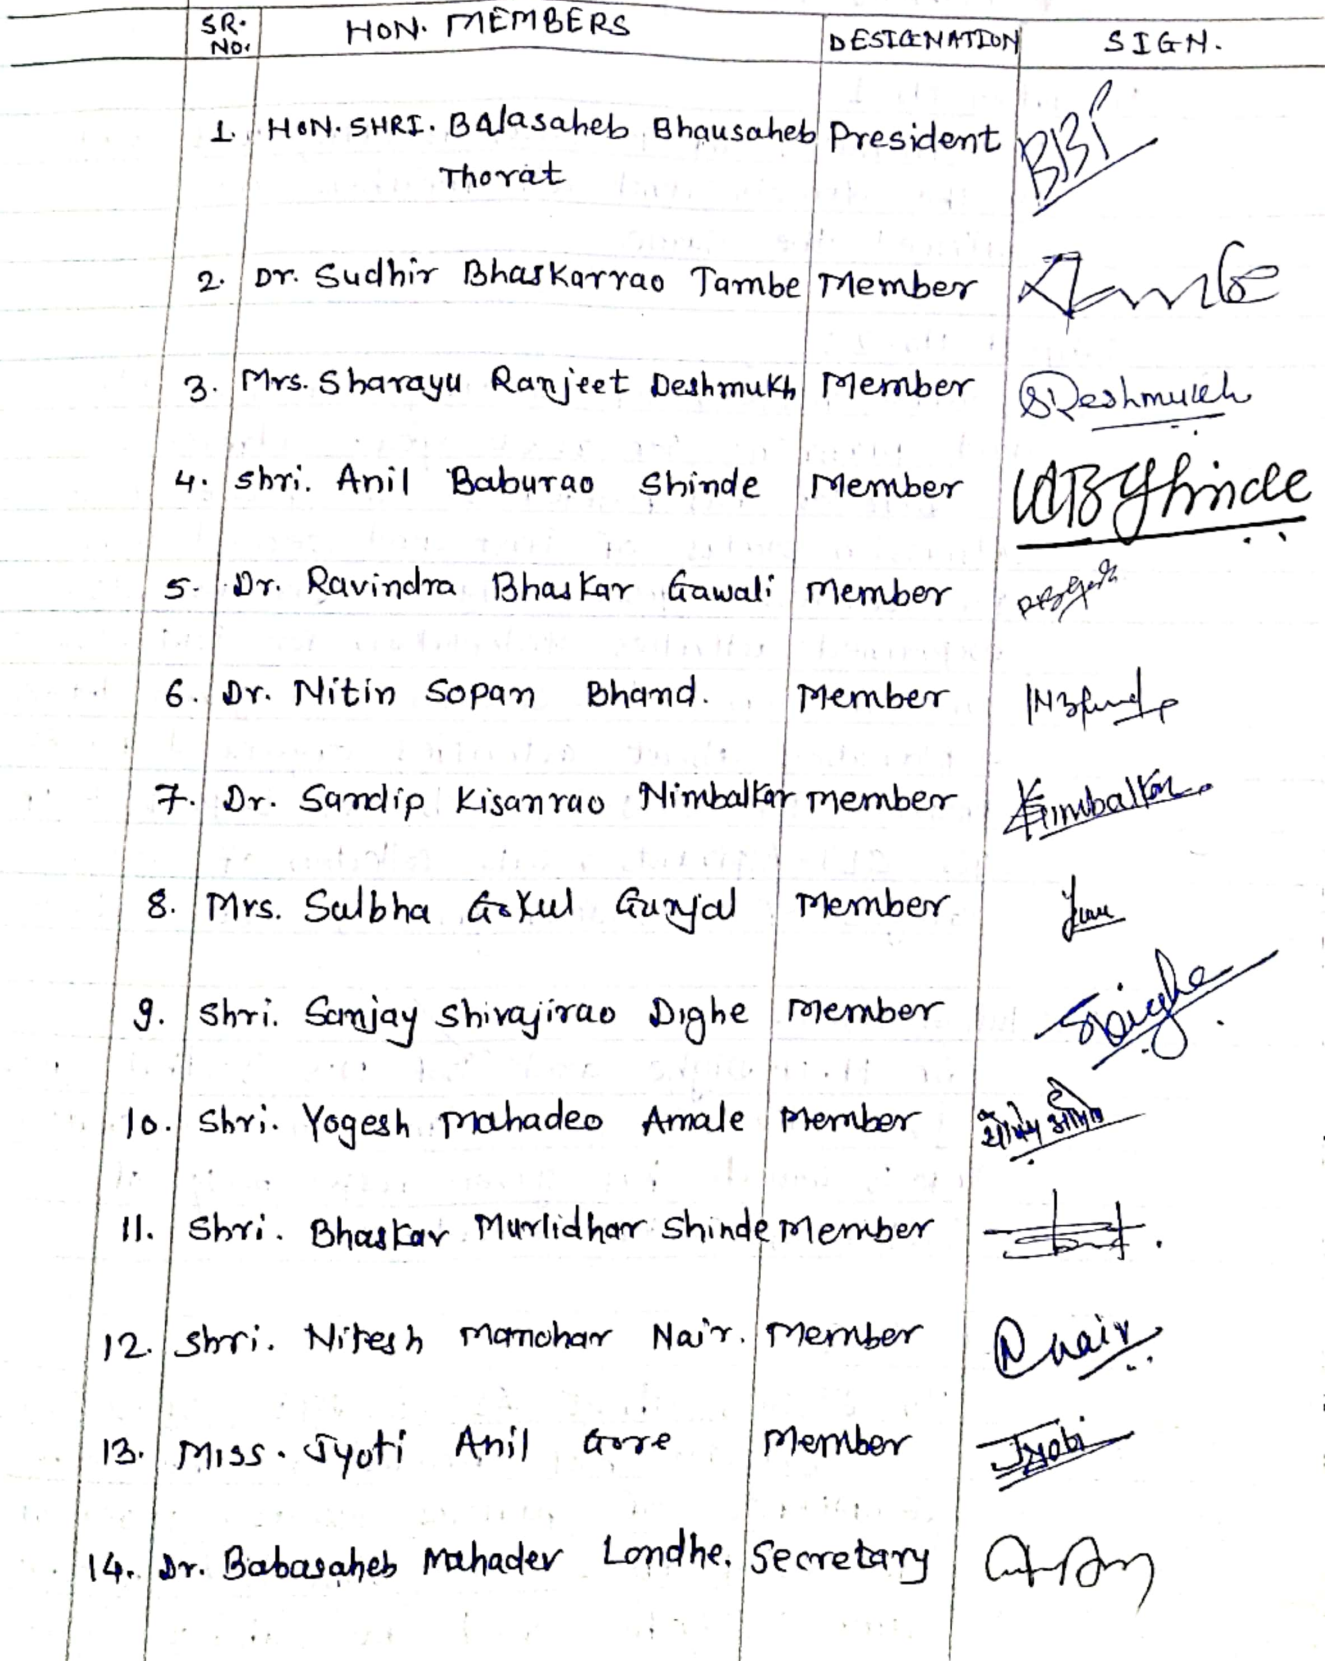 SR. NO. HON. MEMBERS DESIGNATION SIGN.
1. HON. SHRI. Balasaheb Bhausaheb President BBT
Thorat
2. Dr. Sudhir Bhaskarrao Tambe Member Tambe
3. Mrs. Sharayu Ranjeet Deshmukh Member SDeshmukh
4. Shri. Anil Baburao Shinde Member ABShinde
5. Dr. Ravindra Bhaskar Gawali Member
6. Dr. Nitin Sopan Bhand. Member
7. Dr. Sandip Kisanrao Nimbalkar Member Nimbalkar
8. Mrs. Sulbha Gokul Gunjal Member
9. Shri. Sanjay Shivajirao Dighe Member SDighe
10. Shri. Yogesh Mahadeo Amale Member
11. Shri. Bhaskar Murlidhar Shinde Member
12. Shri. Nitesh Manohar Nair. Member Nair
13. Miss. Jyoti Anil Gore Member Jyoti
14. Dr. Babasaheb Mahadev Londhe. Secretary